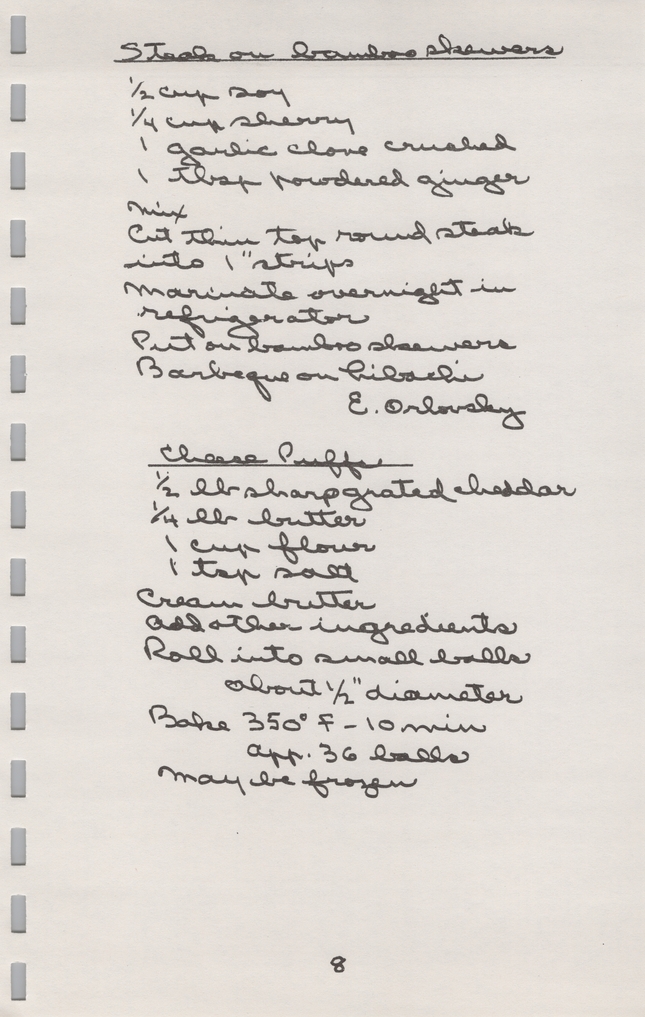 Steak on bamboo skewers
1/2 cup soy
1/4 cup sherry
1 garlic clove crushed
1 tbsp powdered ginger
mix
Cut thin top round steak
into 1" strips
marinate overnight in
refrigerator
Put on bamboo skewers
Barbeque on hibachi
E. Orlovsky
Cheese Puffs
1/2 lb sharp grated cheddar
1/4 lb butter
1 cup flour
1 tsp salt
Cream butter
add other ingredients
Roll into small balls
about 1/2" diameter
Bake 350° F - 10 min
app. 36 balls
may be frozen
8